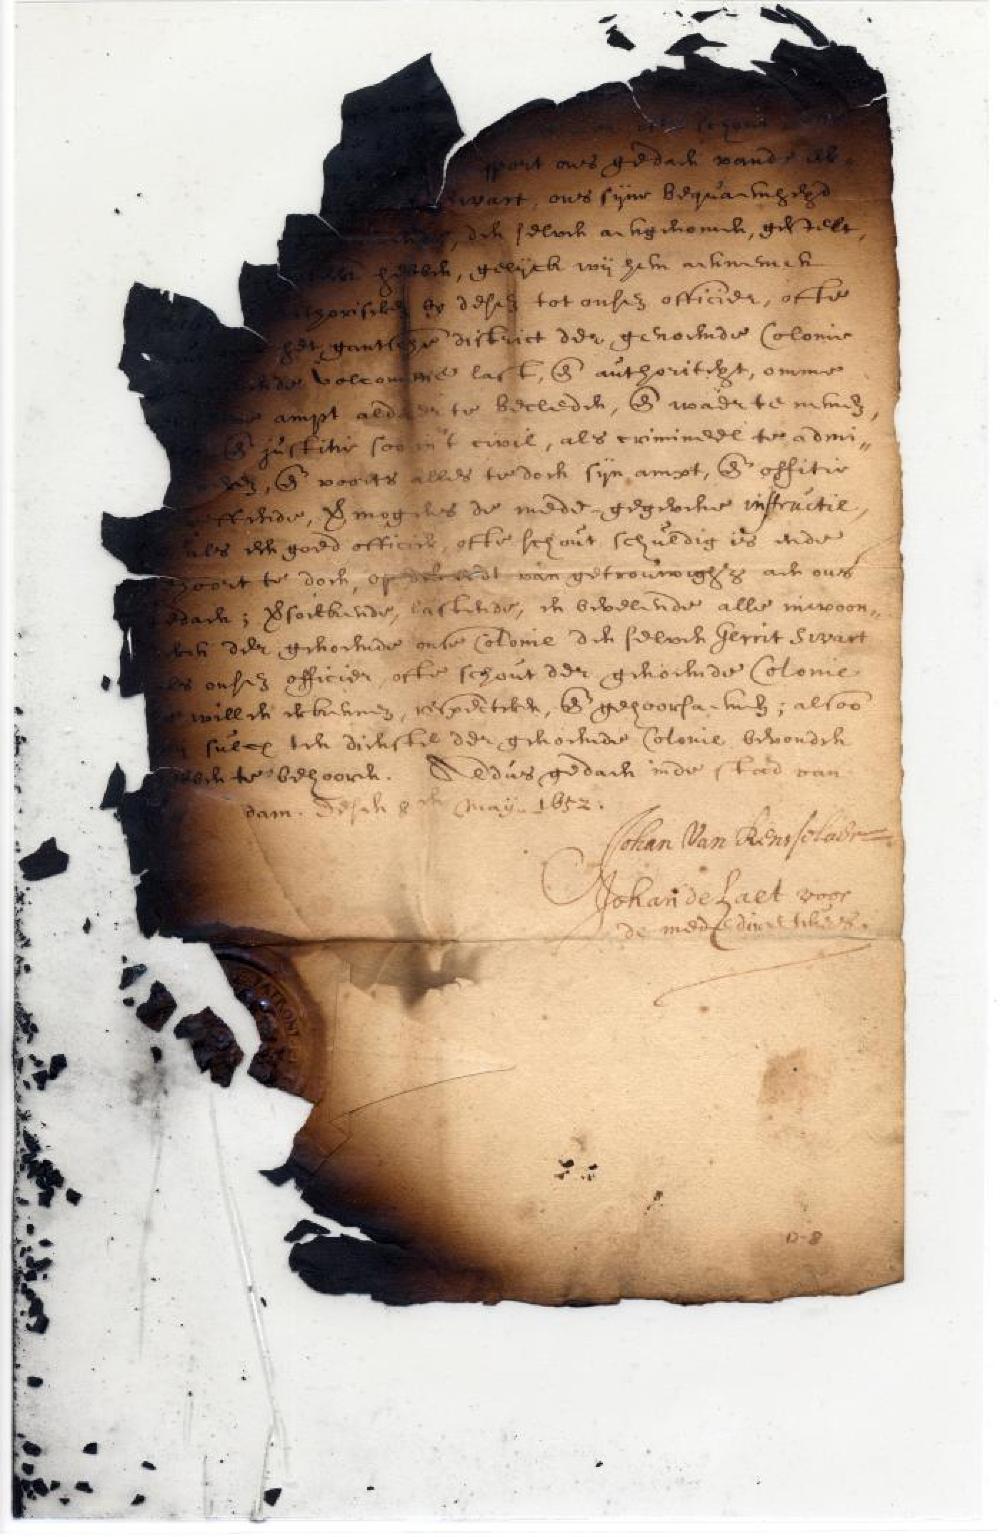 ofte schout
rport ons gedaen vande eb-
Swart, ons sijne bequaemheyd
den selven aengenomen, gestelt,
hebben, gelijck wij hem aennemen
thoriseren by desen tot onsen officier, ofte
het gantsche district der genoemde Colonie
volcomene last, & authoriteyt, omme
ampt aldaer te becleden, & waer te nemen,
& justitie soo in't civil, als crimineel te admi„
& voorts alles te doen sijn ampt, & offitie
effende, mogens de mede-gegevene instructie,
als een goed officier, ofte schout schuldig is ende
hoort te doen, op den eedt van getrouwigheyt aen ons
edaen; Versoeckende, lastende, en bevelende alle inwoon„
der genoemde onse Colonie den selven Gerrit Swart
als onsen officier, ofte schout der genoemde Colonie
te willen erkennen, respecteren, & gehoorsamen; alsoo
wij sulcx ten dienste der genoemde Colonie bevonden
hebben te behooren. Aldus gedaen inde stad van
dam. desen 8en May. 1652.
Johan Van Rensselaer
Johan de Laet voor
de mede directeurs.
PATRONI
D-8